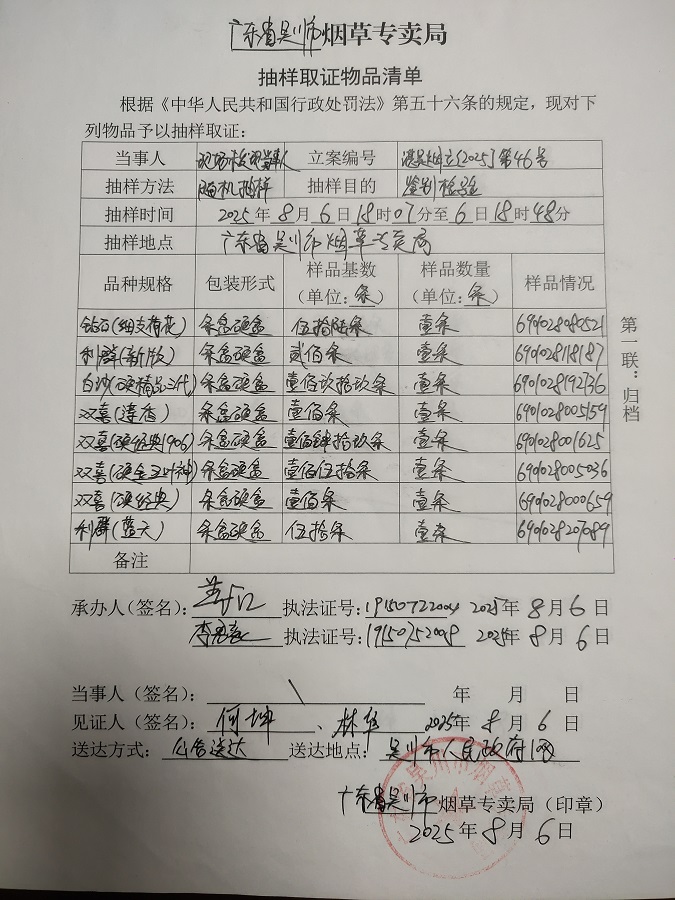 广东省吴川市烟草专卖局
抽样取证物品清单
根据《中华人民共和国行政处罚法》第五十六条的规定，现对下
列物品予以抽样取证：
当事人 现场核现当事人 立案编号 湛吴烟立[2025]第46号
抽样方法 随机抽样 抽样目的 鉴别检验
抽样时间 2025年8月6日18时07分至6日18时48分
抽样地点 广东省吴川市烟草专卖局
品种规格 包装形式 样品基数（单位：条） 样品数量（单位：条） 样品情况
钻石(细支荷花) 条盒硬盒 伍拾陆条 壹条 6901028080521
利群(新版) 条盒硬盒 贰佰条 壹条 6901028118187
白沙(硬精品三代) 条盒硬盒 壹佰玖拾玖条 壹条 6901028192736
双喜(莲香) 条盒硬盒 壹佰条 壹条 6901028005159
双喜(硬经典1906) 条盒硬盒 壹佰肆拾玖条 壹条 6901028001625
双喜(硬金五叶神) 条盒硬盒 壹佰伍拾条 壹条 6901028005036
双喜(硬经典) 条盒硬盒 壹佰条 壹条 6901028000659
利群(蓝天) 条盒硬盒 伍拾条 壹条 6901028207089
备注
第一联：归档
承办人（签名）： 执法证号：19150722004 2025年8月6日
执法证号：19150752008 2025年8月6日
当事人（签名）： 年 月 日
见证人（签名）：何坤、林华 2025年8月6日
送达方式：公告送达 送达地点：吴川市人民政府门网
广东省吴川市烟草专卖局（印章）
2025年8月6日